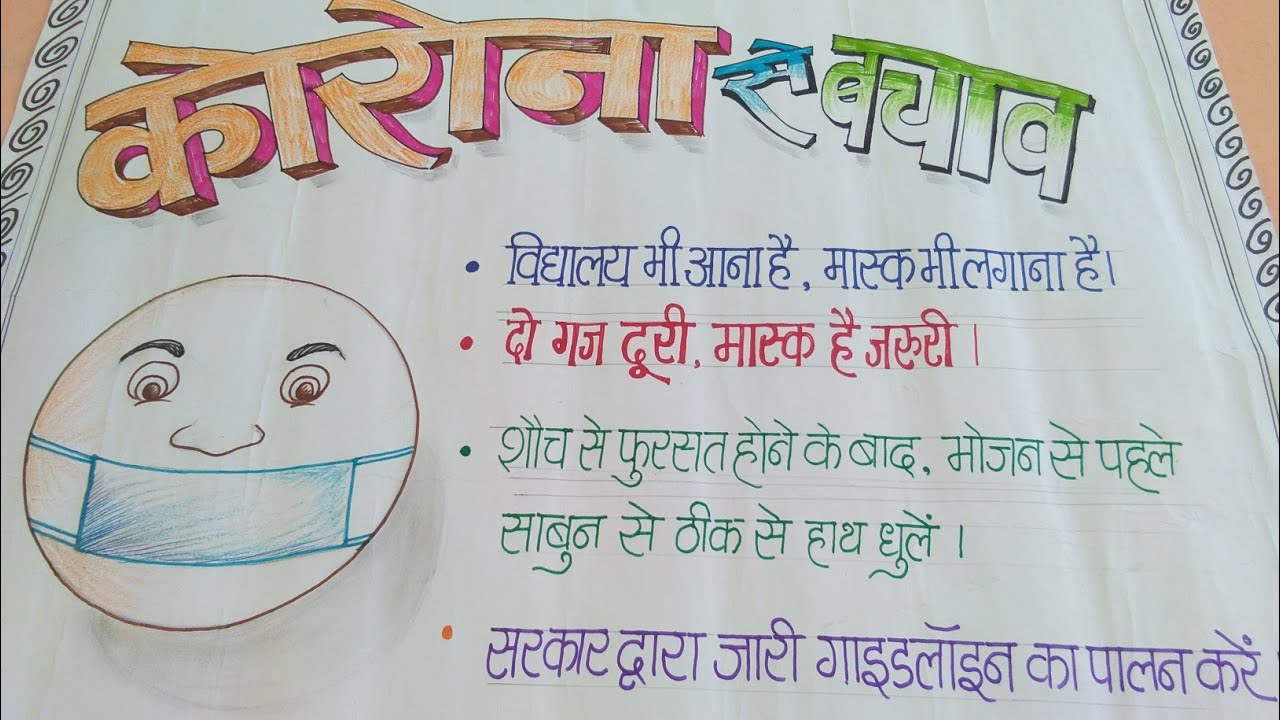 कोरोना से बचाव
• विद्यालय भी आना है, मास्क भी लगाना है।
• दो गज दूरी, मास्क है जरुरी ।
• शौच से फुरसत होने के बाद, भोजन से पहले
साबुन से ठीक से हाथ धुलें ।
• सरकार द्वारा जारी गाइडलॉइन का पालन करें।